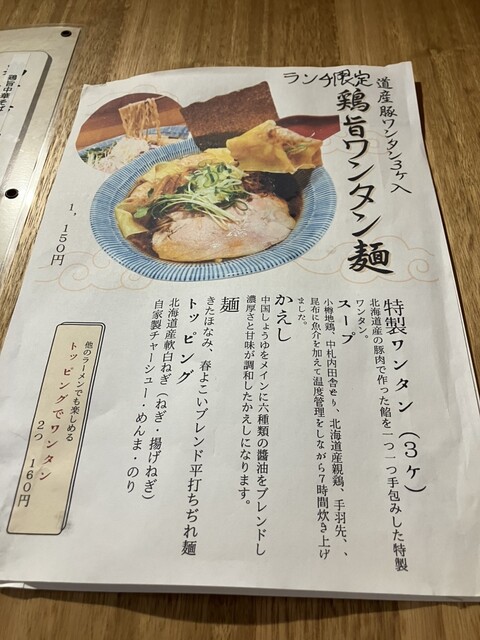 ランチ限定
道産豚ワンタン3ケ入
鶏旨ワンタン麺
1,150円
特製ワンタン（3ヶ）
北海道産の豚肉で作った餡を一つ一つ手包みした特製
ワンタン。
スープ
小樽地鶏、中札内田舎どり、北海道産親鶏、手羽先、、
昆布に魚介を加えて温度管理をしながら7時間炊き上げ
ました。
かえし
中国しょうゆをメインに六種類の醤油をブレンドし
濃厚さと甘味が調和したかえしになります。
麺
きたほなみ、春よこいブレンド平打ちぢれ麺
トッピング
北海道産軟白ねぎ（ねぎ・揚げねぎ）
自家製チャーシュー・めんま・のり
他のラーメンでも楽しめる
トッピングでワンタン
2つ 160円
鶏旨中華そば